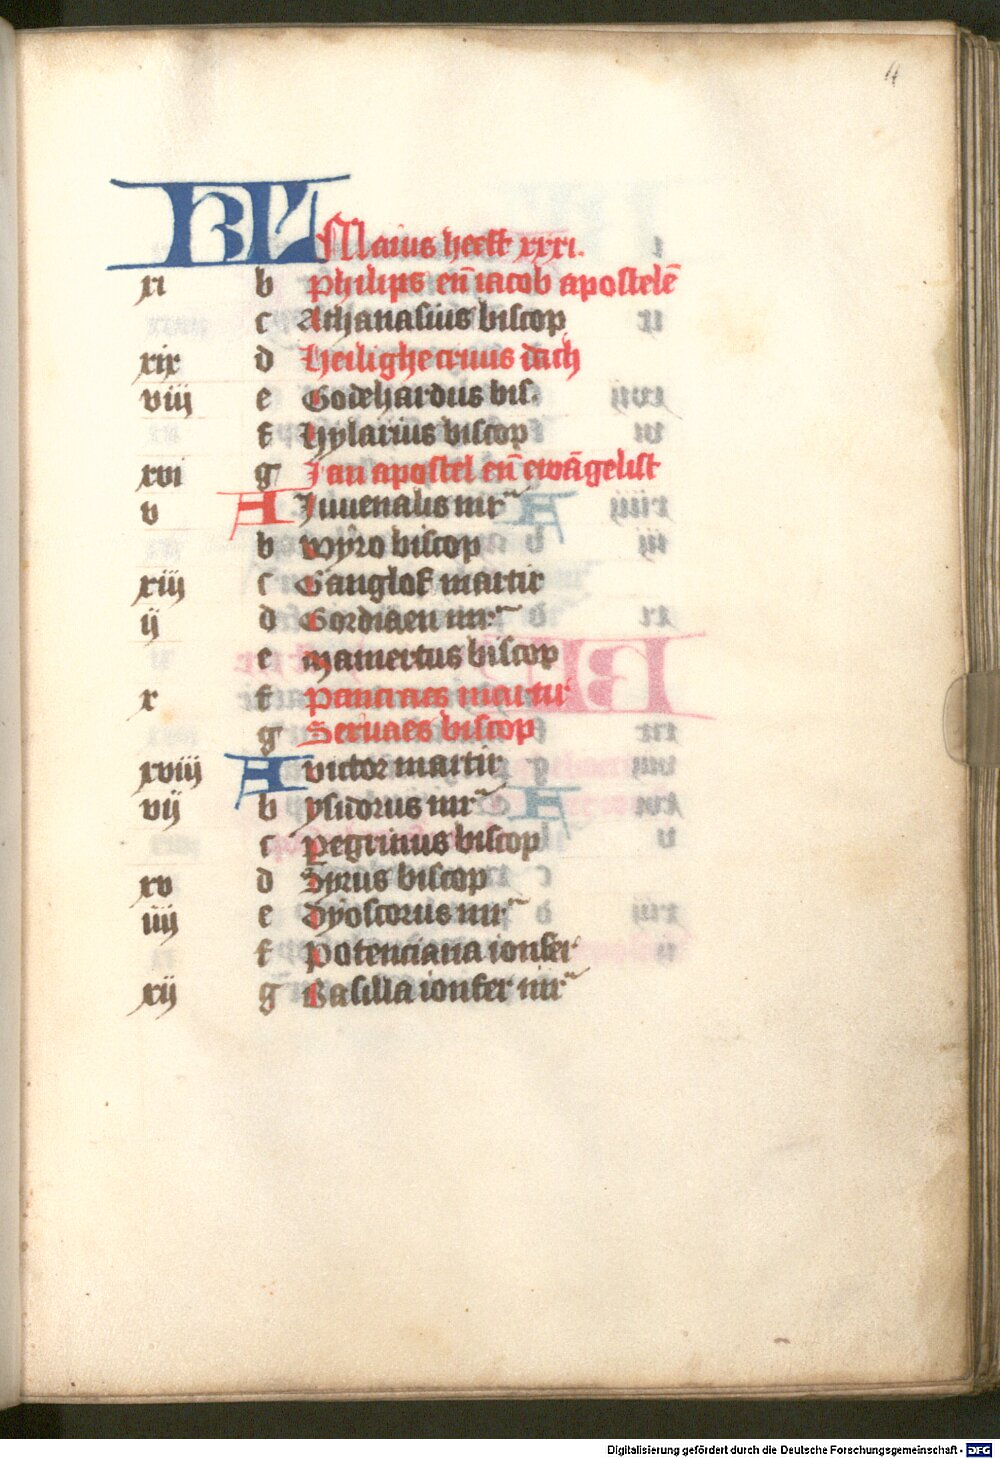 4
KL Maius heeft xxxi.
xi b Philips en̄ iacob apostelē
c Athanasius biscop
xix d Heilighe cruus dach
viij e Godehardus bis.
f Hylarius biscop
xvi g Jan apostel en̄ ewāgelist
v A Juuenalis mr̃
b Wyro biscop
xiij c Ganglof martir
ij d Gordiaen mr̃
e Mamertus biscop
x f Pancraes martir
g Seruaes biscop
xviij A Victor martir
vij b Ysidorus mr̃
c Pegrinus biscop
xv d Syrus biscop
iiij e Dyoscorus mr̃
f Potenciana ionfer
xij g Basilla ionfer mr̃
Digitalisierung gefördert durch die Deutsche Forschungsgemeinschaft - DFG